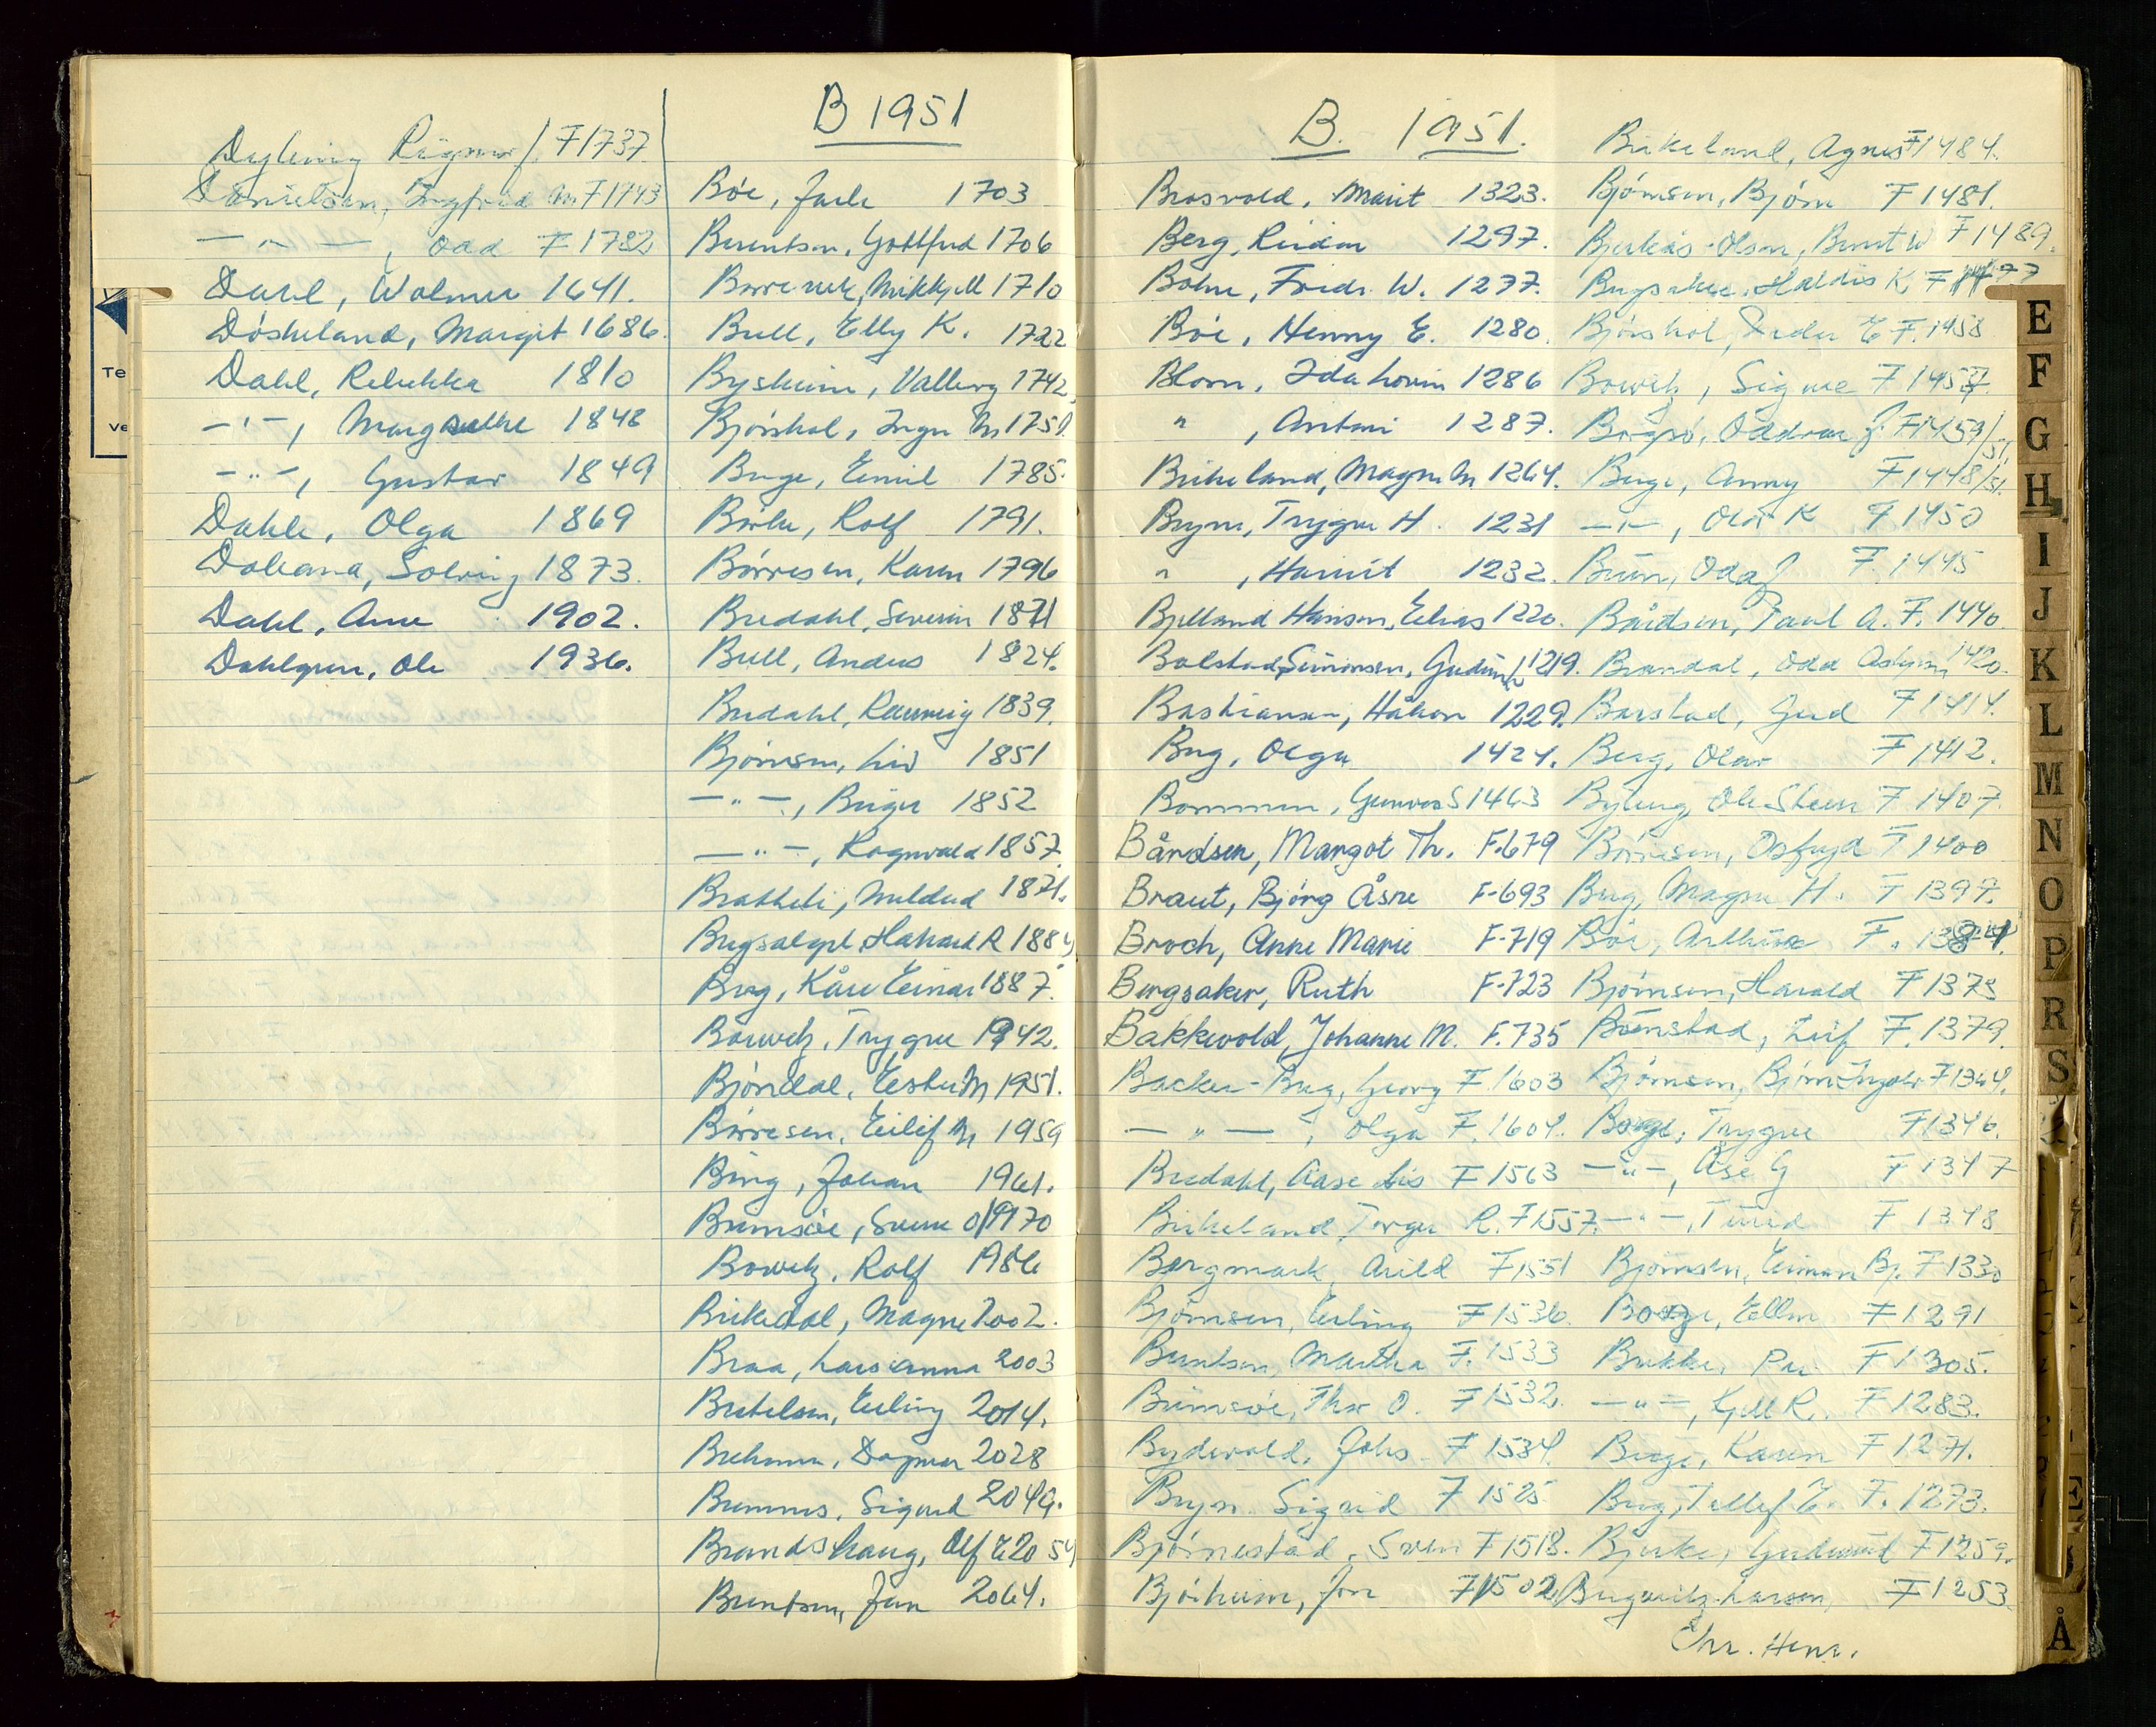 Dahl, Wolmer 1641.
Døskeland, Margit 1686.
Dahl, Rebekka 1810
-"-, Margrethe 1848
-"-, Gustav 1849
Dahle, Olga 1869
Solveig 1873.
Dahl, Arne 1902.
Dahlgren, Ole 1936.
B 1951
Bøe, Jarle 1703
Berentsen, Gottfred 1706
1710
Bull, Elly K. 1722
Bysheim, Valborg 1742
Bjørshol, Inger M 1751
Berge, Emil 1785.
Rolf 1791.
Børresen, Karen 1796
Bredahl, Severin 1871
Bull, Anders 1824.
Bredahl, Rannveig 1839.
Bjørnsen, Liv 1851
-"-, Birger 1852
-"-, Ragnvald 1857.
Bratteli, Mildred 1871.
1884
Berg, Kåre Einar 1887.
Bowitz, Trygve 1942.
Bjørndal, Ester M 1951.
Børresen, Eilif M 1959
Bing, Johan 1961.
1970
Bowitz, Rolf 1986
Birkedal, Magne 2002.
Braa, Lars 2003
Bertelsen, Erling 2014.
Dagmar 2028
Sigurd 2049.
Brandshaug, Alf E 2054
Berntsen, Jan 2064.
B. 1951.
Brosvold, Marit 1323.
Berg, Reidar 1297.
Bohne, Fredr. W. 1277.
Bøe, Henny E. 1280.
Blom, Ida Lovise 1286
" , Antoni 1287.
Birkeland, Magne M 1264.
Bryne, Trygve H. 1231
" , Harriet 1232.
Bjelland Hansen, Elias 1220.
Bolstad Simonsen, Gudrun 1219.
Bastiansen, Håkon 1229.
Berg, Olga 1424.
1463
Bårdsen, Margot Th. F.679
Braut, Bjørg Åsne F-693
Broch, Anne Marie F-719
Bergsaker, Ruth F-723
Bakkevold, Johanne M. F.735
Backer-Berg, Georg F.1603
- " - , Olga F.1604.
Bredahl, Aase Lis F 1563
Birkeland, Torger R. F1557.
Bergmark, Arild F1551
Bjørnsen, Erling F1536.
Berntsen, Martha F.1533
Thor O. F1532.
Bydevold, Johs F 1534.
Bryn Sigrid F 1525
Bjørnestad, Sven F1518.
Bjørheim, Jon F1502
Birkeland, Agnes F1484.
Bjørnsen, Bjørn F1481.
Bjerkås-Olsen, Bernt W F1489.
Haldis K.
Bjørshol, Peder E F.1458
Bowitz, Signe F 1457.
Oddvar J. F1459/51
Berge, Anny F1448/51.
-"-, Olav K F1450
F.1445
Bårdsen, Paul A. F.1440.
Brandal, Odd 1420.
Barstad, Gerd F1414.
Berg, Olav F1412.
Ole Steen F 1407.
Børresen, Osfryd F 1400
Berg, Magne H. F 1397.
Bøe, F.
Bjørnsen, Harald F 1373
Leif F.1379.
Bjørnsen, F1364.
Trygve F1346.
-"-, Åse G F 1347
-"-, Turid F 1348
Bjørnsen, Einar Bj. F 1330
F1291
Bakke, Per F1305.
-"-, Kjell R. F1283.
Berge, Karen F1271.
Berg, Tellef E. F.1273.
Bjerke, Gudmund F1259.
Larsen, F1253
Chr. Henr.
Te
ve
E
F
G
H
I
J
K
L
M
N
O
P
R
S
Å